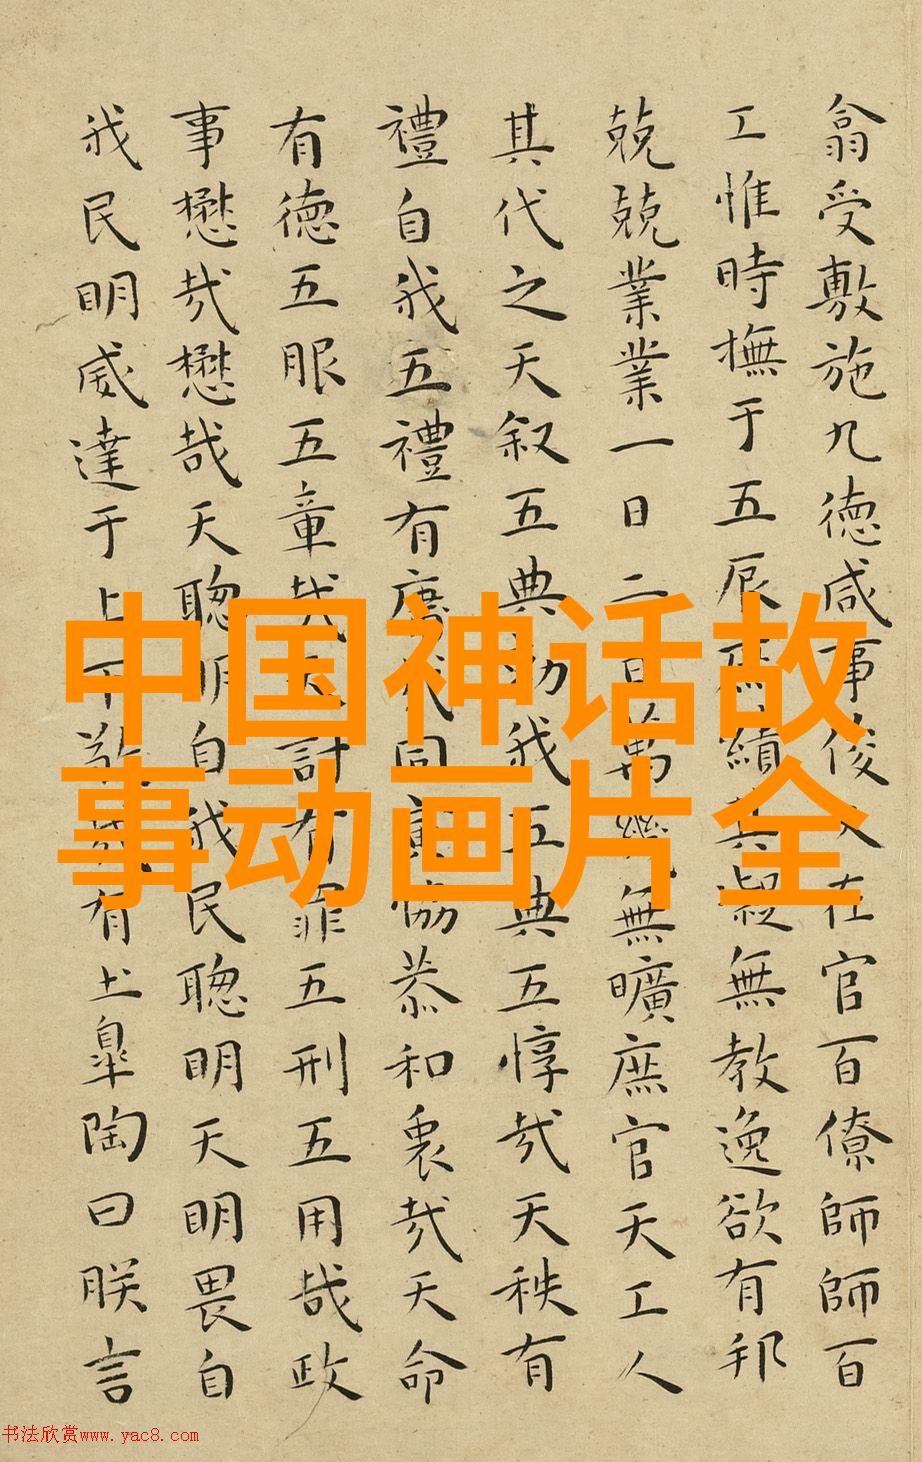 翕受敷施九德咸事俊乂在官百僚師師百
工惟時撫于五辰庶績其凝無教逸欲有邦
兢兢業業一日二日萬幾無曠庶官天工人
其代之天叙五典勑我五典五惇哉天秩有
禮自我五禮有庸哉同寅協恭和衷哉天命
有德五服五章哉天討有罪五刑五用哉政
事懋哉懋哉天聰明自我民聰明天明畏自
我民明威達于上下敬哉有土皐陶曰朕言
中国神话故
事动画片全
书法欣赏www.yac8.com